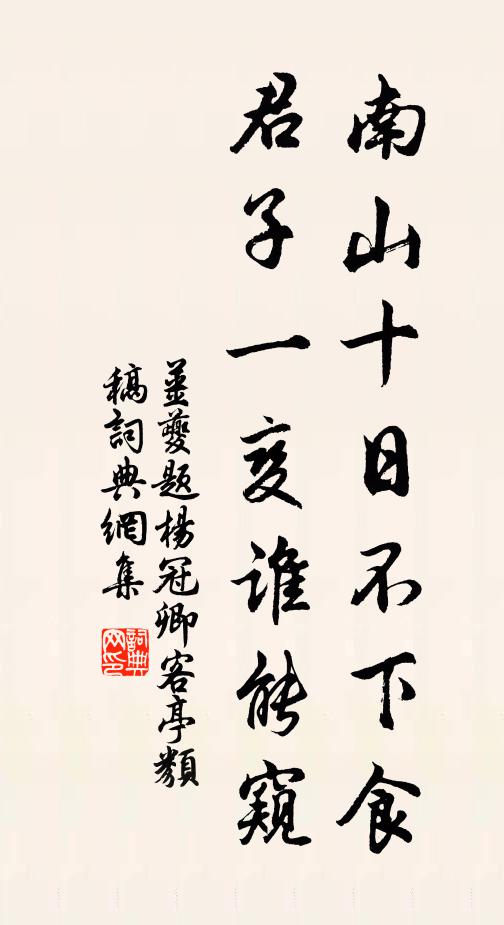 南山十日不下食
君子一变谁能窥
姜夔题杨冠卿客亭类
稿詞典網集
詞典网印